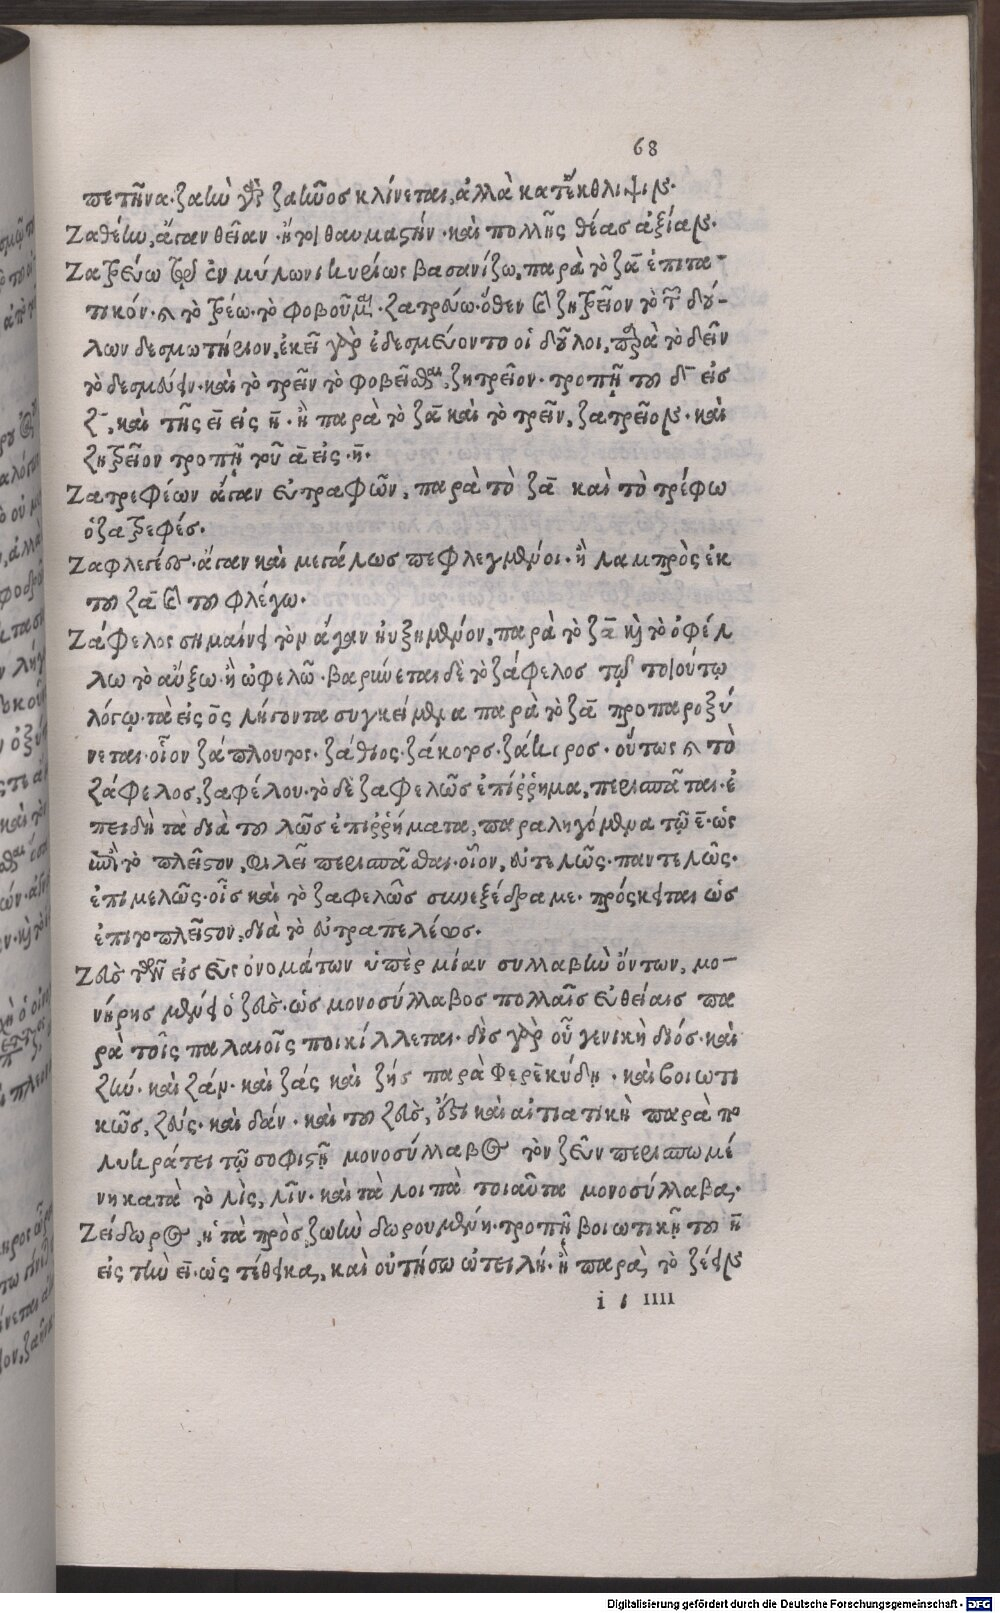 68
πετηνα· ζαὴν γὰρ ζαῆνος κλίνεται, ἀλλὰ κατ' ἔκθλιψιν.
Ζαθέην, ἄγαν θείαν· ἤγουν θαυμαστήν· καὶ πολλῆς θέας ἀξίαν.
Ζατρεύω τὸ ἐν μύλωνι κυρίως βασανίζω, παρὰ τὸ ζα ἐπιτα-
τικόν· καὶ τὸ τρέω· τὸ φοβοῦμαι· ζατρεύω· ὅθεν καὶ ζητρεῖον τὸ τῶν δού-
λων δεσμωτήριον, ἐκεῖ γὰρ ἐδεσμεύοντο οἱ δοῦλοι, παρὰ τὸ δεῖν
τὸ δεσμεύειν· καὶ τὸ τρεῖν τὸ φοβεῖσθαι, ζητρεῖον· τροπῇ τοῦ δ εἰς
ζ, καὶ τῆς ει εἰς η· ἢ παρὰ τὸ ζα καὶ τὸ τρεῖν, ζατρεῖον· καὶ
ζητρεῖον τροπῇ τοῦ α εἰς η·
Ζατρεφέων ἄγαν εὐτραφῶν, παρὰ τὸ ζα καὶ τὸ τρέφω
ὁ ζατρεφές.
Ζαφλεγέες· ἄγαν καὶ μεγάλως πεφλεγμένοι· ἢ λαμπρὸς ἐκ
τοῦ ζα καὶ τοῦ φλέγω.
Ζάφελος σημαίνει τὸν ἄγαν ηὐξημένον, παρὰ τὸ ζα καὶ τὸ ὀφέλ
λω τὸ αὔξω· ἢ ὠφελῶ· βαρύνεται δὲ τὸ ζάφελος τῷ τοιούτῳ
λόγῳ· τὰ εἰς ος λήγοντα συγκείμενα παρὰ τὸ ζα προπαροξύ
νεται· οἷον ζάπλουτος· ζάθεος· ζάκορος· ζάκιρος· οὕτως καὶ τὸ
ζάφελος, ζαφέλου· τὸ δὲ ζαφελῶς ἐπίῤῥημα, περισπᾶται· ἐ
πειδὴ τὰ διὰ τοῦ λῶς ἐπιῤῥήματα, παραληγόμενα τῷ ε· ὡς
ἐπὶ τὸ πλεῖστον, φιλεῖ περισπᾶσθαι· οἷον, εὐτελῶς· παντελῶς·
ἐπιμελῶς· οἷς καὶ τὸ ζαφελῶς συνεξέδραμε· πρόσκειται ὡς
ἐπιτοπλεῖστον, διὰ τὸ εὐτραπελέως.
Ζεύς τῶν εἰς ευς ὀνομάτων ὑπὲρ μίαν συλλαβὴν ὄντων, μο-
νήρης μένει ὁ ζεύς· ὡς μονοσύλλαβος πολλαῖς εὐθείαις πα
ρὰ τοῖς παλαιοῖς ποικίλλεται· δὶς γὰρ οὗ γενικὴ διός· καὶ
ζήν· καὶ ζάν· καὶ ζάς καὶ ζής παρὰ Φερεκύδῃ· καὶ βοιωτι
κῶς, ζεύς· καὶ δάν· καὶ τοῦ ζεύς, ἔστι καὶ αἰτιατικὴ παρὰ πο
λυκράτει τῷ σοφιστῇ μονοσύλλαβος τὸν ζεῦν περισπωμέ
νη κατὰ τὸ λὶς, λῖν· καὶ τὰ λοιπὰ τοιαῦτα μονοσύλλαβα.
Ζείδωρος, ἡ τὰ πρὸς ζωὴν δωρουμένη· τροπῇ βοιωτικῇ τοῦ η
εἰς τὴν ει· ὡς τέθεικα, καὶ οὐτήσω ὠτειλή· ἢ παρὰ τὸ ζέειν
i iiii
Digitalisierung gefördert durch die Deutsche Forschungsgemeinschaft - DFG